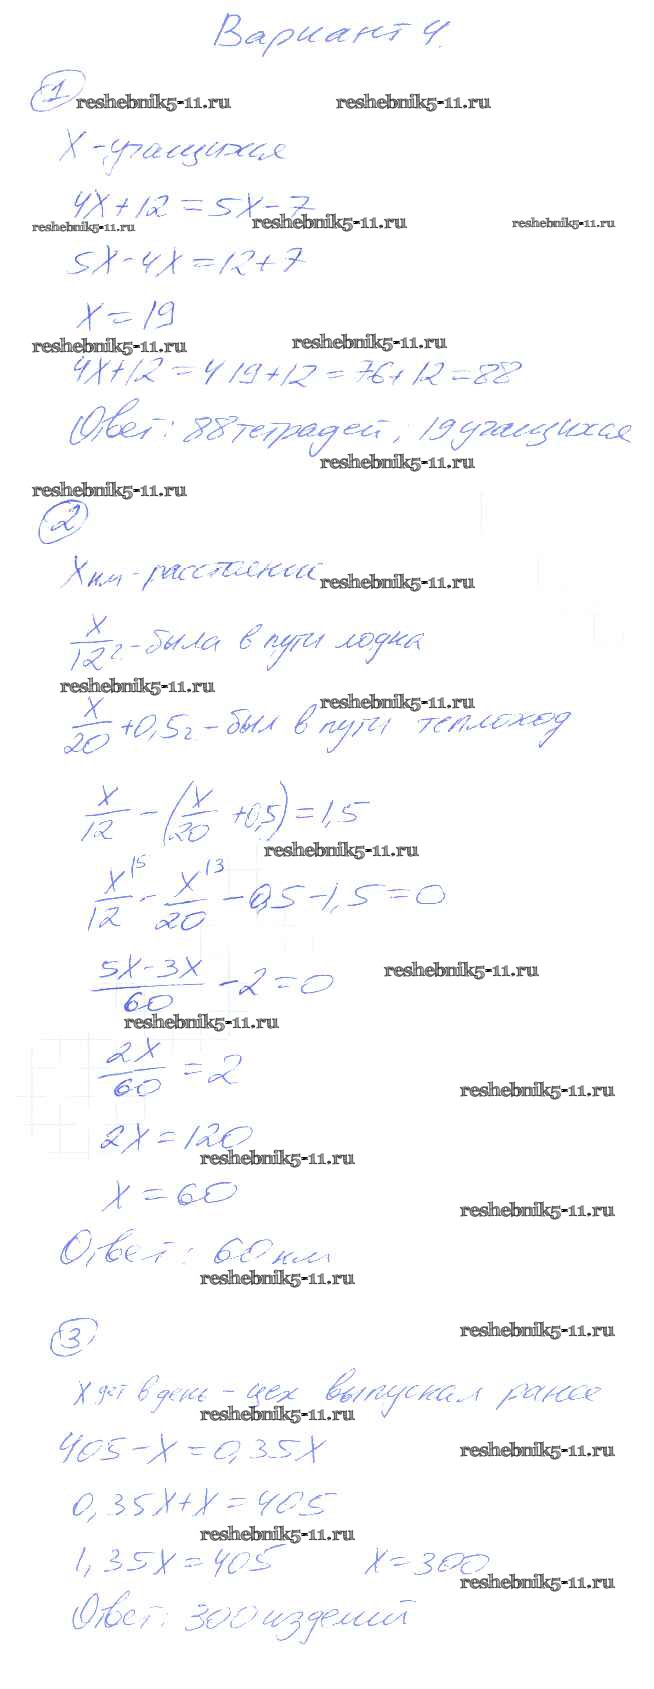 Вариант 4.
1
reshebnik5-11.ru reshebnik5-11.ru
X - учащихся
4X+12=5X-7
reshebnik5-11.ru reshebnik5-11.ru reshebnik5-11.ru
5X-4X=12+7
X=19
reshebnik5-11.ru reshebnik5-11.ru
4X+12=4 19+12=76+12=88
Ответ: 88 тетрадей; 19 учащихся
reshebnik5-11.ru
reshebnik5-11.ru
2
X км - расстояние
reshebnik5-11.ru
X/12 ч. - была в пути лодка
reshebnik5-11.ru
reshebnik5-11.ru
X/20 +0,5 ч - был в пути теплоход
X/12 - (X/20 +0,5)=1,5
reshebnik5-11.ru
X/12 |5 - X/20 |3 -0,5-1,5=0
(5X-3X)/60 -2=0
reshebnik5-11.ru
reshebnik5-11.ru
2X/60 =2
reshebnik5-11.ru
2X=120
reshebnik5-11.ru
X=60
reshebnik5-11.ru
Ответ: 60 км
reshebnik5-11.ru
3
reshebnik5-11.ru
X дет в день - цех выпускал ранее
reshebnik5-11.ru
405-X=0,35X
reshebnik5-11.ru
0,35X+X=405
reshebnik5-11.ru
1,35X=405 X=300
reshebnik5-11.ru
Ответ: 300 изделий